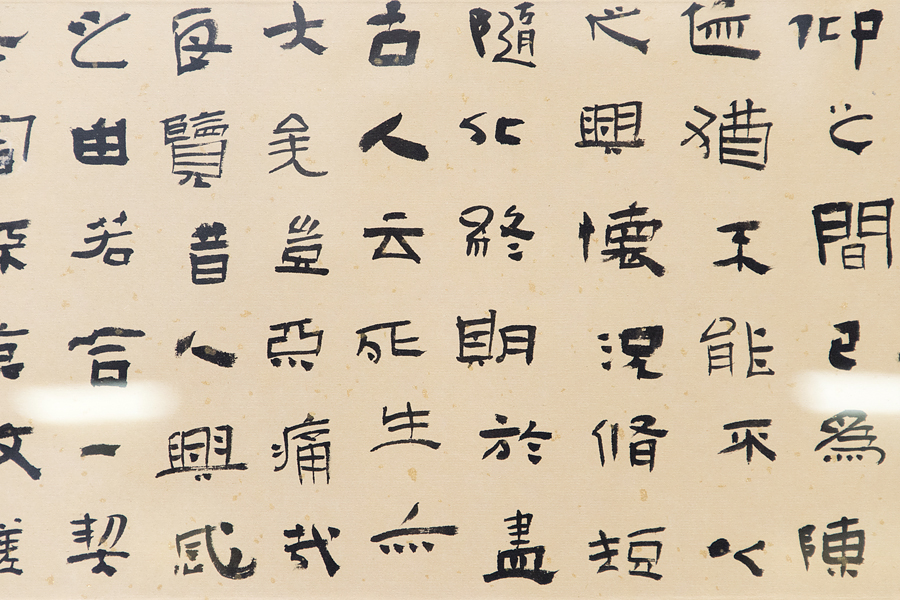 仰之間已為陳
迹猶不能不以
之興懷況脩短
隨化終期於盡
古人云死生亦
大矣豈痛哉
每覽昔人興感
之由若合一契